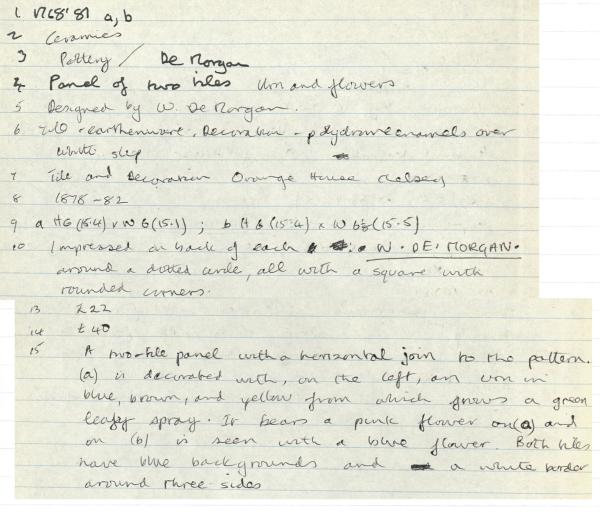 1 V268'81 a, b
2 Ceramics
3 Pottery / De Morgan
4 Panel of two tiles Urn and flowers
5 Designed by W. De Morgan.
6 Tile - earthenware, Decoration - polychrome enamels over
white slip
7 Tile and Decoration Orange House Chelsea
8 1878-82
9 a H 6 (15.4) x W 6 (15.1) ; b H 6 (15.4) x W 6⅛ (15.5)
10 Impressed on back of each W. DE. MORGAN.
around a dotted circle, all with a square with
rounded corners.
13 £22
14 £40
15 A two-tile panel with a horizontal join to the pattern.
(a) is decorated with, on the left, an urn in
blue, brown, and yellow from which grows a green
leafy spray. It bears a pink flower on (a) and
on (b) is seen with a blue flower. Both tiles
have blue backgrounds and a white border
around three sides